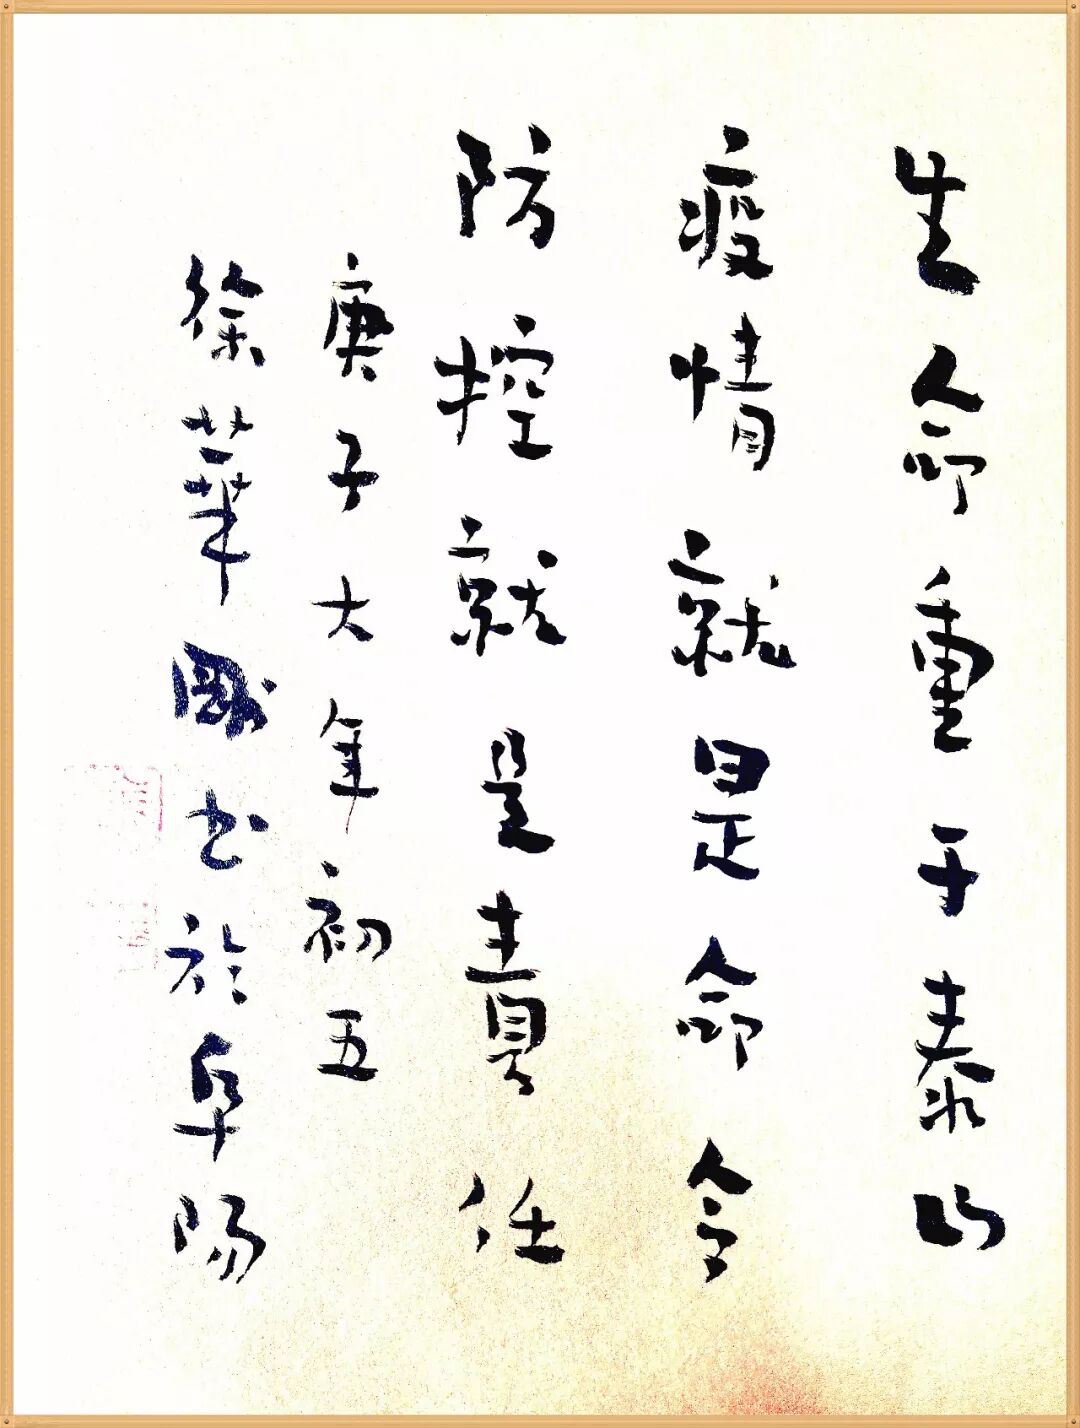 生命重于泰山
疫情就是命令
防控就是責任
庚子大年初五
徐華剛书於阜陽